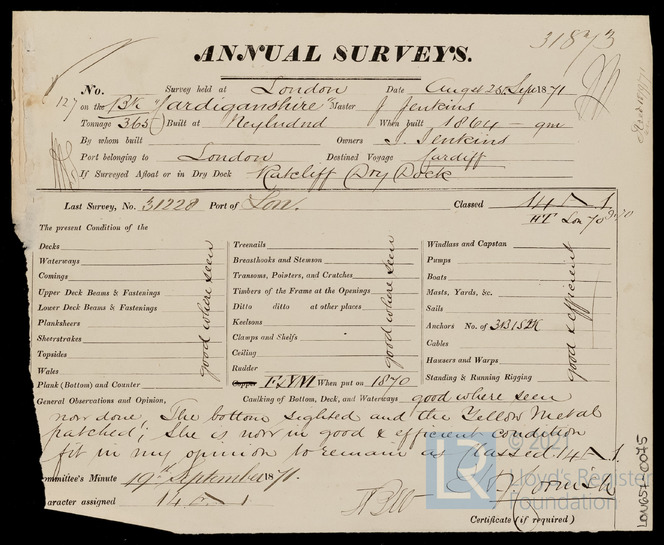 31873
ANNUAL SURVEYS.
No. Survey held at London Date Augst 25. Sep 1871
127 on the Bk "Cardiganshire" Master J Jenkins
Tonnage 365 Built at Neyland When built 1864 - 9m
By whom built Owners J. Jenkins
Port belonging to London Destined Voyage Cardiff
If Surveyed Afloat or in Dry Dock Ratcliff Dry Dock
Last Survey, No. 31228 Port of Lon. Classed 14 A 1
HT Lon 70
The present Condition of the
Decks
Waterways
Comings
Upper Deck Beams & Fastenings
Lower Deck Beams & Fastenings
Planksheers
Sheerstrakes
Topsides
Wales
Plank (Bottom) and Counter
good where seen
Treenails
Breasthooks and Stemson
Transoms, Pointers, and Crutches
Timbers of the Frame at the Openings
Ditto ditto at other places
Keelsons
Clamps and Shelfs
Ceiling
Rudder
Copper FLYM When put on 1870
good where seen
Windlass and Capstan
Pumps
Boats
Masts, Yards, &c.
Sails
Anchors No. of 3B 1S 2K
Cables
Hausers and Warps
Standing & Running Rigging
good & efficient
General Observations and Opinion, Caulking of Bottom, Deck, and Waterways good where seen
now done The bottom sighted and the Yellow Metal
patched; She is now in good & efficient condition
fit in my opinion to remain as Classed 14 A 1
ommittee's Minute 19th September 1871.
aracter assigned 14 A 1
Cornish
Certificate (if required)
LR © 2021
Lloyd's Register
Foundation
LON657-0075